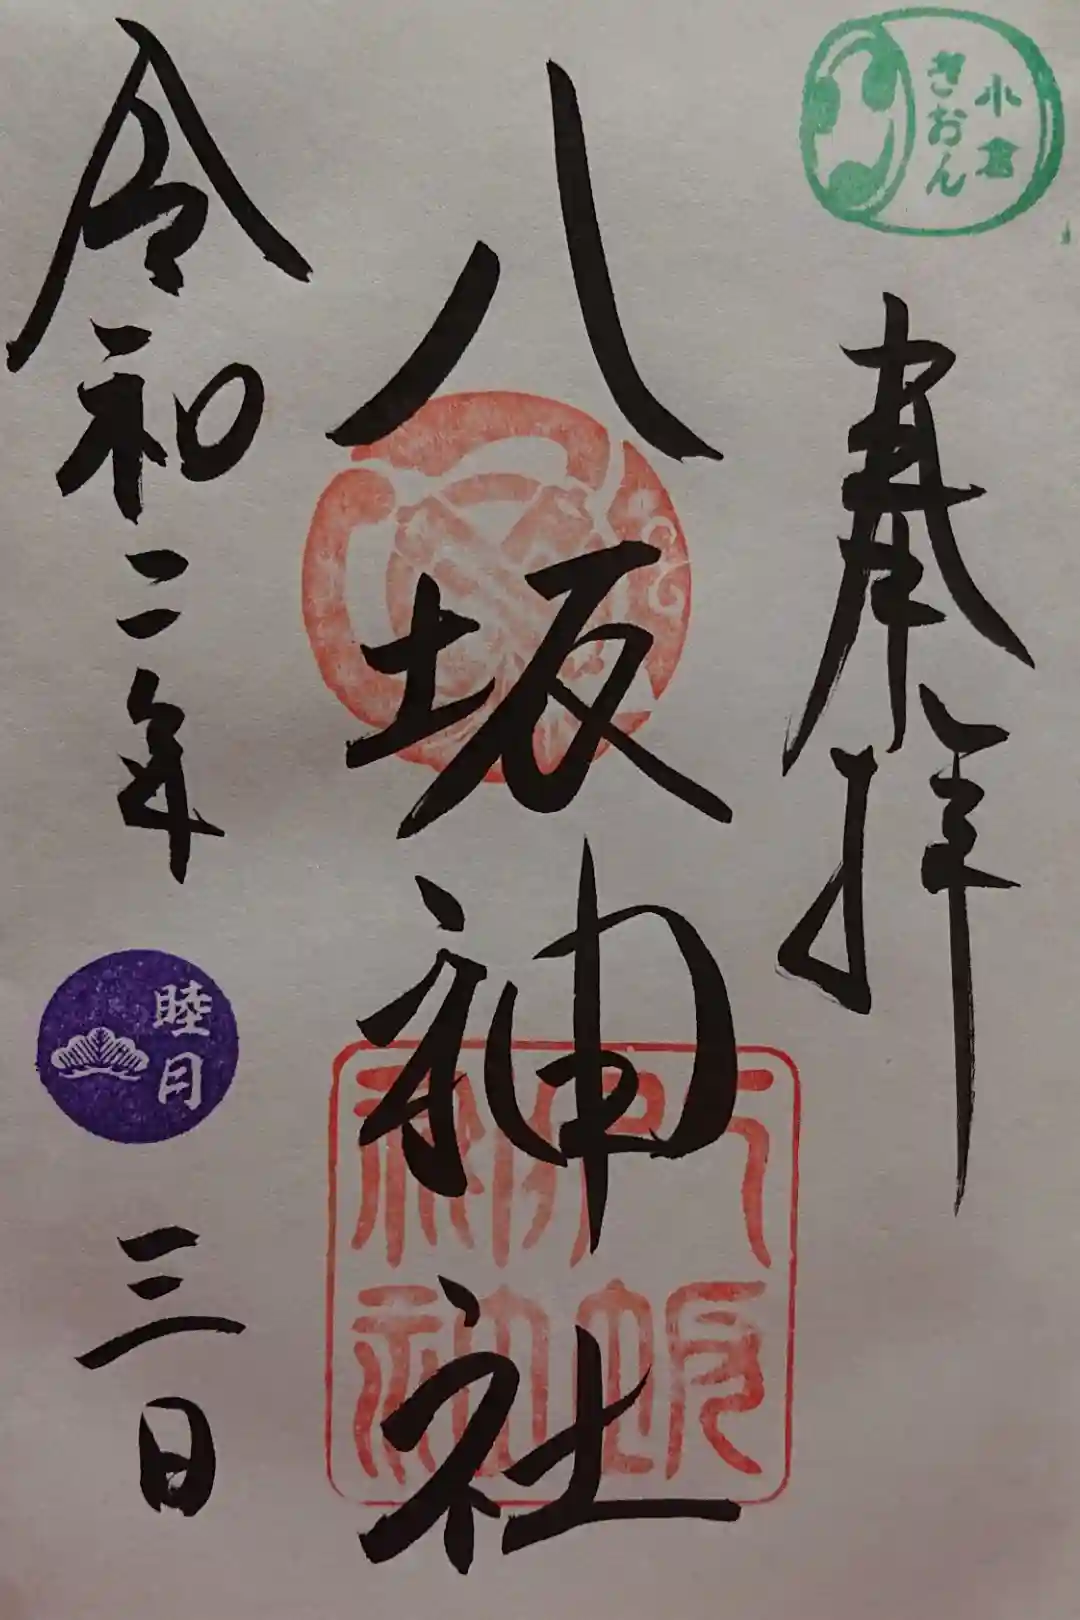 小倉
ぎおん
奉拝
八坂神社
八坂神社
令和二年
睦月
三日